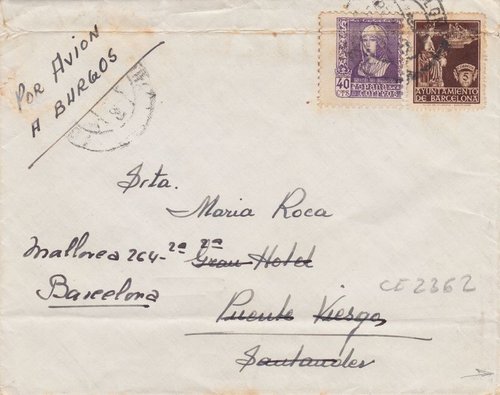 POR AVION
A BURGOS
40
CTS
ESPAÑA
CORREOS
5
AYUNTAMIENTO
DE BARCELONA
Srta.
Maria Roca
Mallorca 264-2ª 2ª
Gran Hotel
Barcelona
CE2362
Puente Viesgo
Santander